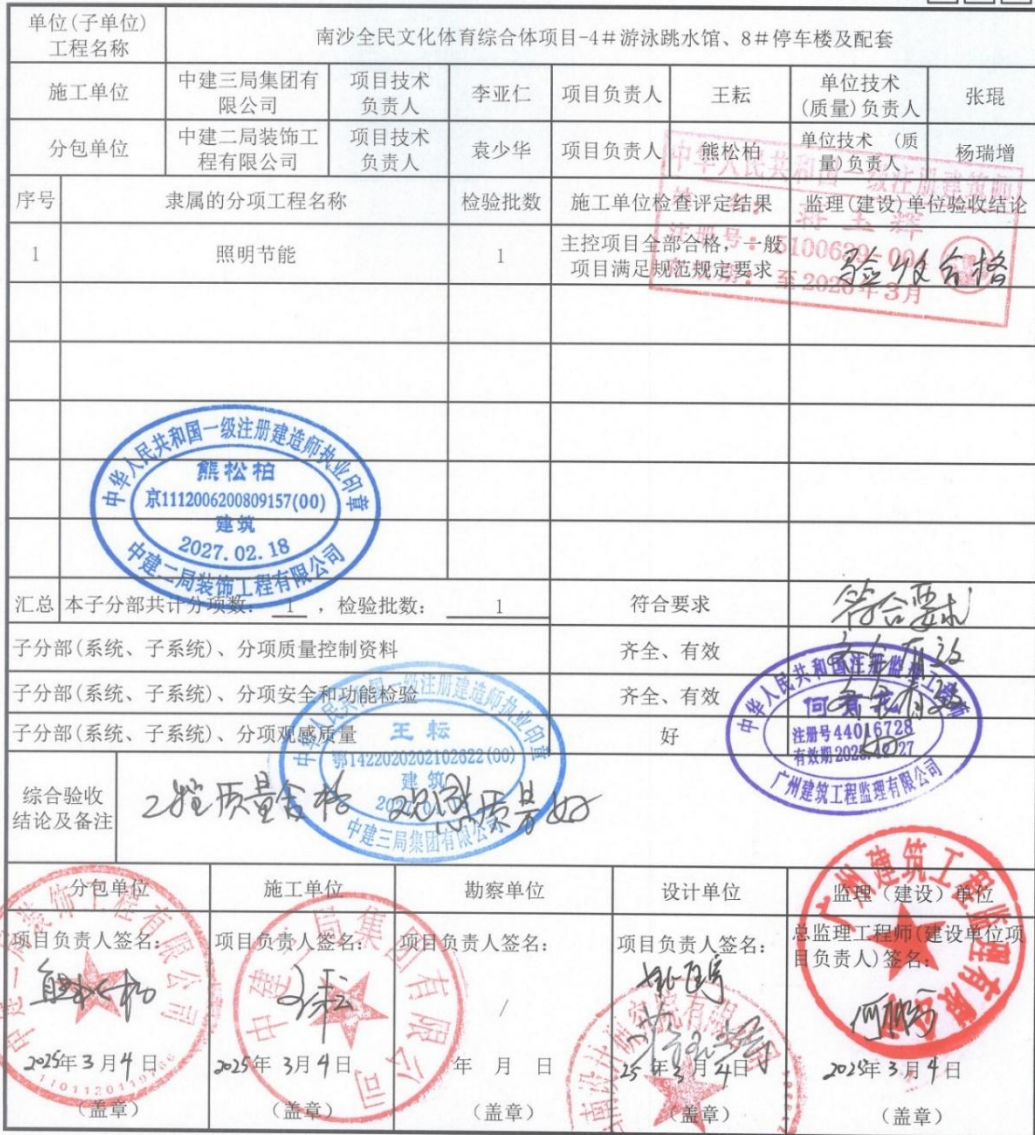 单位(子单位)
工程名称
南沙全民文化体育综合体项目-4#游泳跳水馆、8#停车楼及配套
施工单位
中建三局集团有
限公司
项目技术
负责人
李亚仁
项目负责人
王耘
单位技术
(质量)负责人
张琨
分包单位
中建二局装饰工
程有限公司
项目技术
负责人
袁少华
项目负责人
熊松柏
单位技术 (质
量)负责人
杨瑞增
中华人民共和国一级注册建筑师
序号
隶属的分项工程名称
检验批数
施工单位检查评定结果
监理(建设)单位验收结论
1
照明节能
1
主控项目全部合格，一般
项目满足规范规定要求
验收合格
至2026年3月
中华人民共和国一级注册建造师执业印章
熊松柏
京1112006200809157(00)
建筑
2027.02.18
中建二局装饰工程有限公司
汇总
本子分部共计分项数: 1 ，检验批数: 1
符合要求
符合要求
子分部(系统、子系统)、分项质量控制资料
齐全、有效
齐全有效
子分部(系统、子系统)、分项安全和功能检验
齐全、有效
齐全有效
子分部(系统、子系统)、分项观感质量
好
中华人民共和国一级注册建造师执业印章
王耘
鄂1422020202102622(00)
建筑
中建三局集团有限公司
中华人民共和国注册监理工程师
注册号44016728
有效期
广州建筑工程监理有限公司
综合验收
结论及备注
工程质量合格 观感质量好
分包单位
施工单位
勘察单位
设计单位
监理（建设）单位
项目负责人签名:
项目负责人签名:
项目负责人签名:
项目负责人签名:
总监理工程师(建设单位项
目负责人)签名:
熊松柏
王耘
/
2025年3月4日
2025年3月4日
年 月 日
25年3月4日
2025年3月4日
（盖章）
（盖章）
（盖章）
（盖章）
（盖章）
广州建筑工程监理有限公司